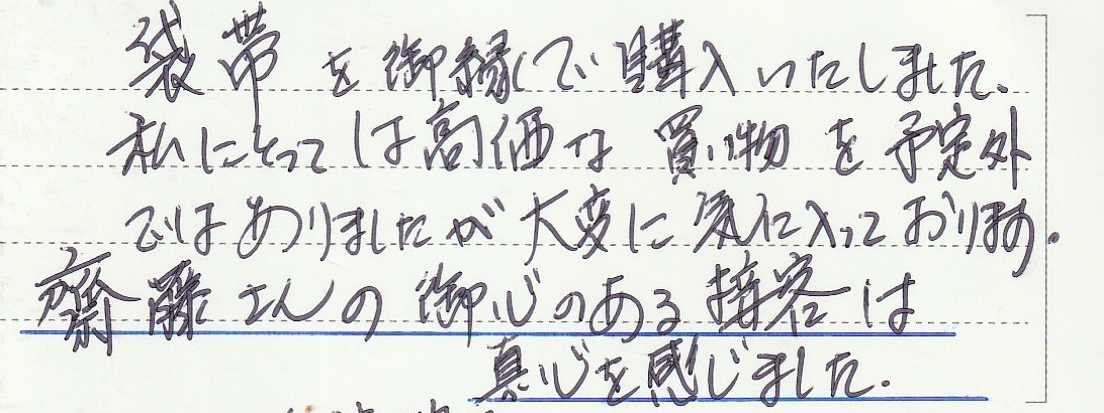 袋帯を御縁で購入いたしました.
私にとっては高価な買い物を予定外
ではありましたが大変に気に入っております.
齋藤さんの御心のある接客は
真心を感じました.